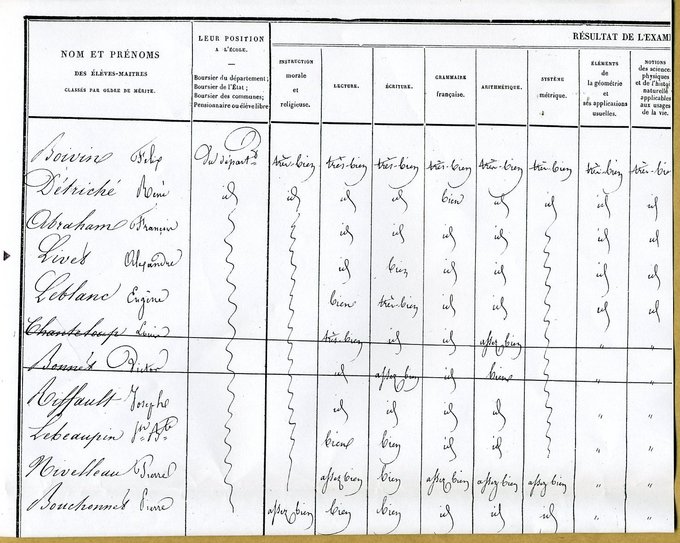 RÉSULTAT DE L'EXAME
NOM ET PRÉNOMS
DES ÉLÈVES-MAITRES
CLASSÉS PAR ORDRE DE MÉRITE.
LEUR POSITION
A L'ÉCOLE.
Boursier du département;
Boursier de l'État;
Boursier des communes;
Pensionnaire ou élève libre
INSTRUCTION
morale
et
religieuse.
LECTURE.
ÉCRITURE.
GRAMMAIRE
française.
ARITHMÉTIQUE.
SYSTÈME
métrique.
ÉLÉMENTS
de
la géométrie
et
ses applications
usuelles.
NOTIONS
des sciences
physiques
et de l'histoi
naturelle
applicables
aux usages
de la vie.
Boivin Félix du départt très-bien très-bien très-bien très-bien très-bien très-bien très-bien très-bie
Détriché René id id id id bien id id id id
Abraham François id id id id id id
Livet Alexandre id bien id id id id
Leblanc Eugène bien très-bien id id id id
Chanteloup Louis très-bien id id assez bien " "
Bonnet Victor id assez bien id bien
Riffault Joseph id id id id " "
Lebeaupin bien bien id id " "
Nivelleau Pierre assez bien bien assez bien assez bien assez bien " "
Bouchonnet Pierre assez bien bien bien id id id " "